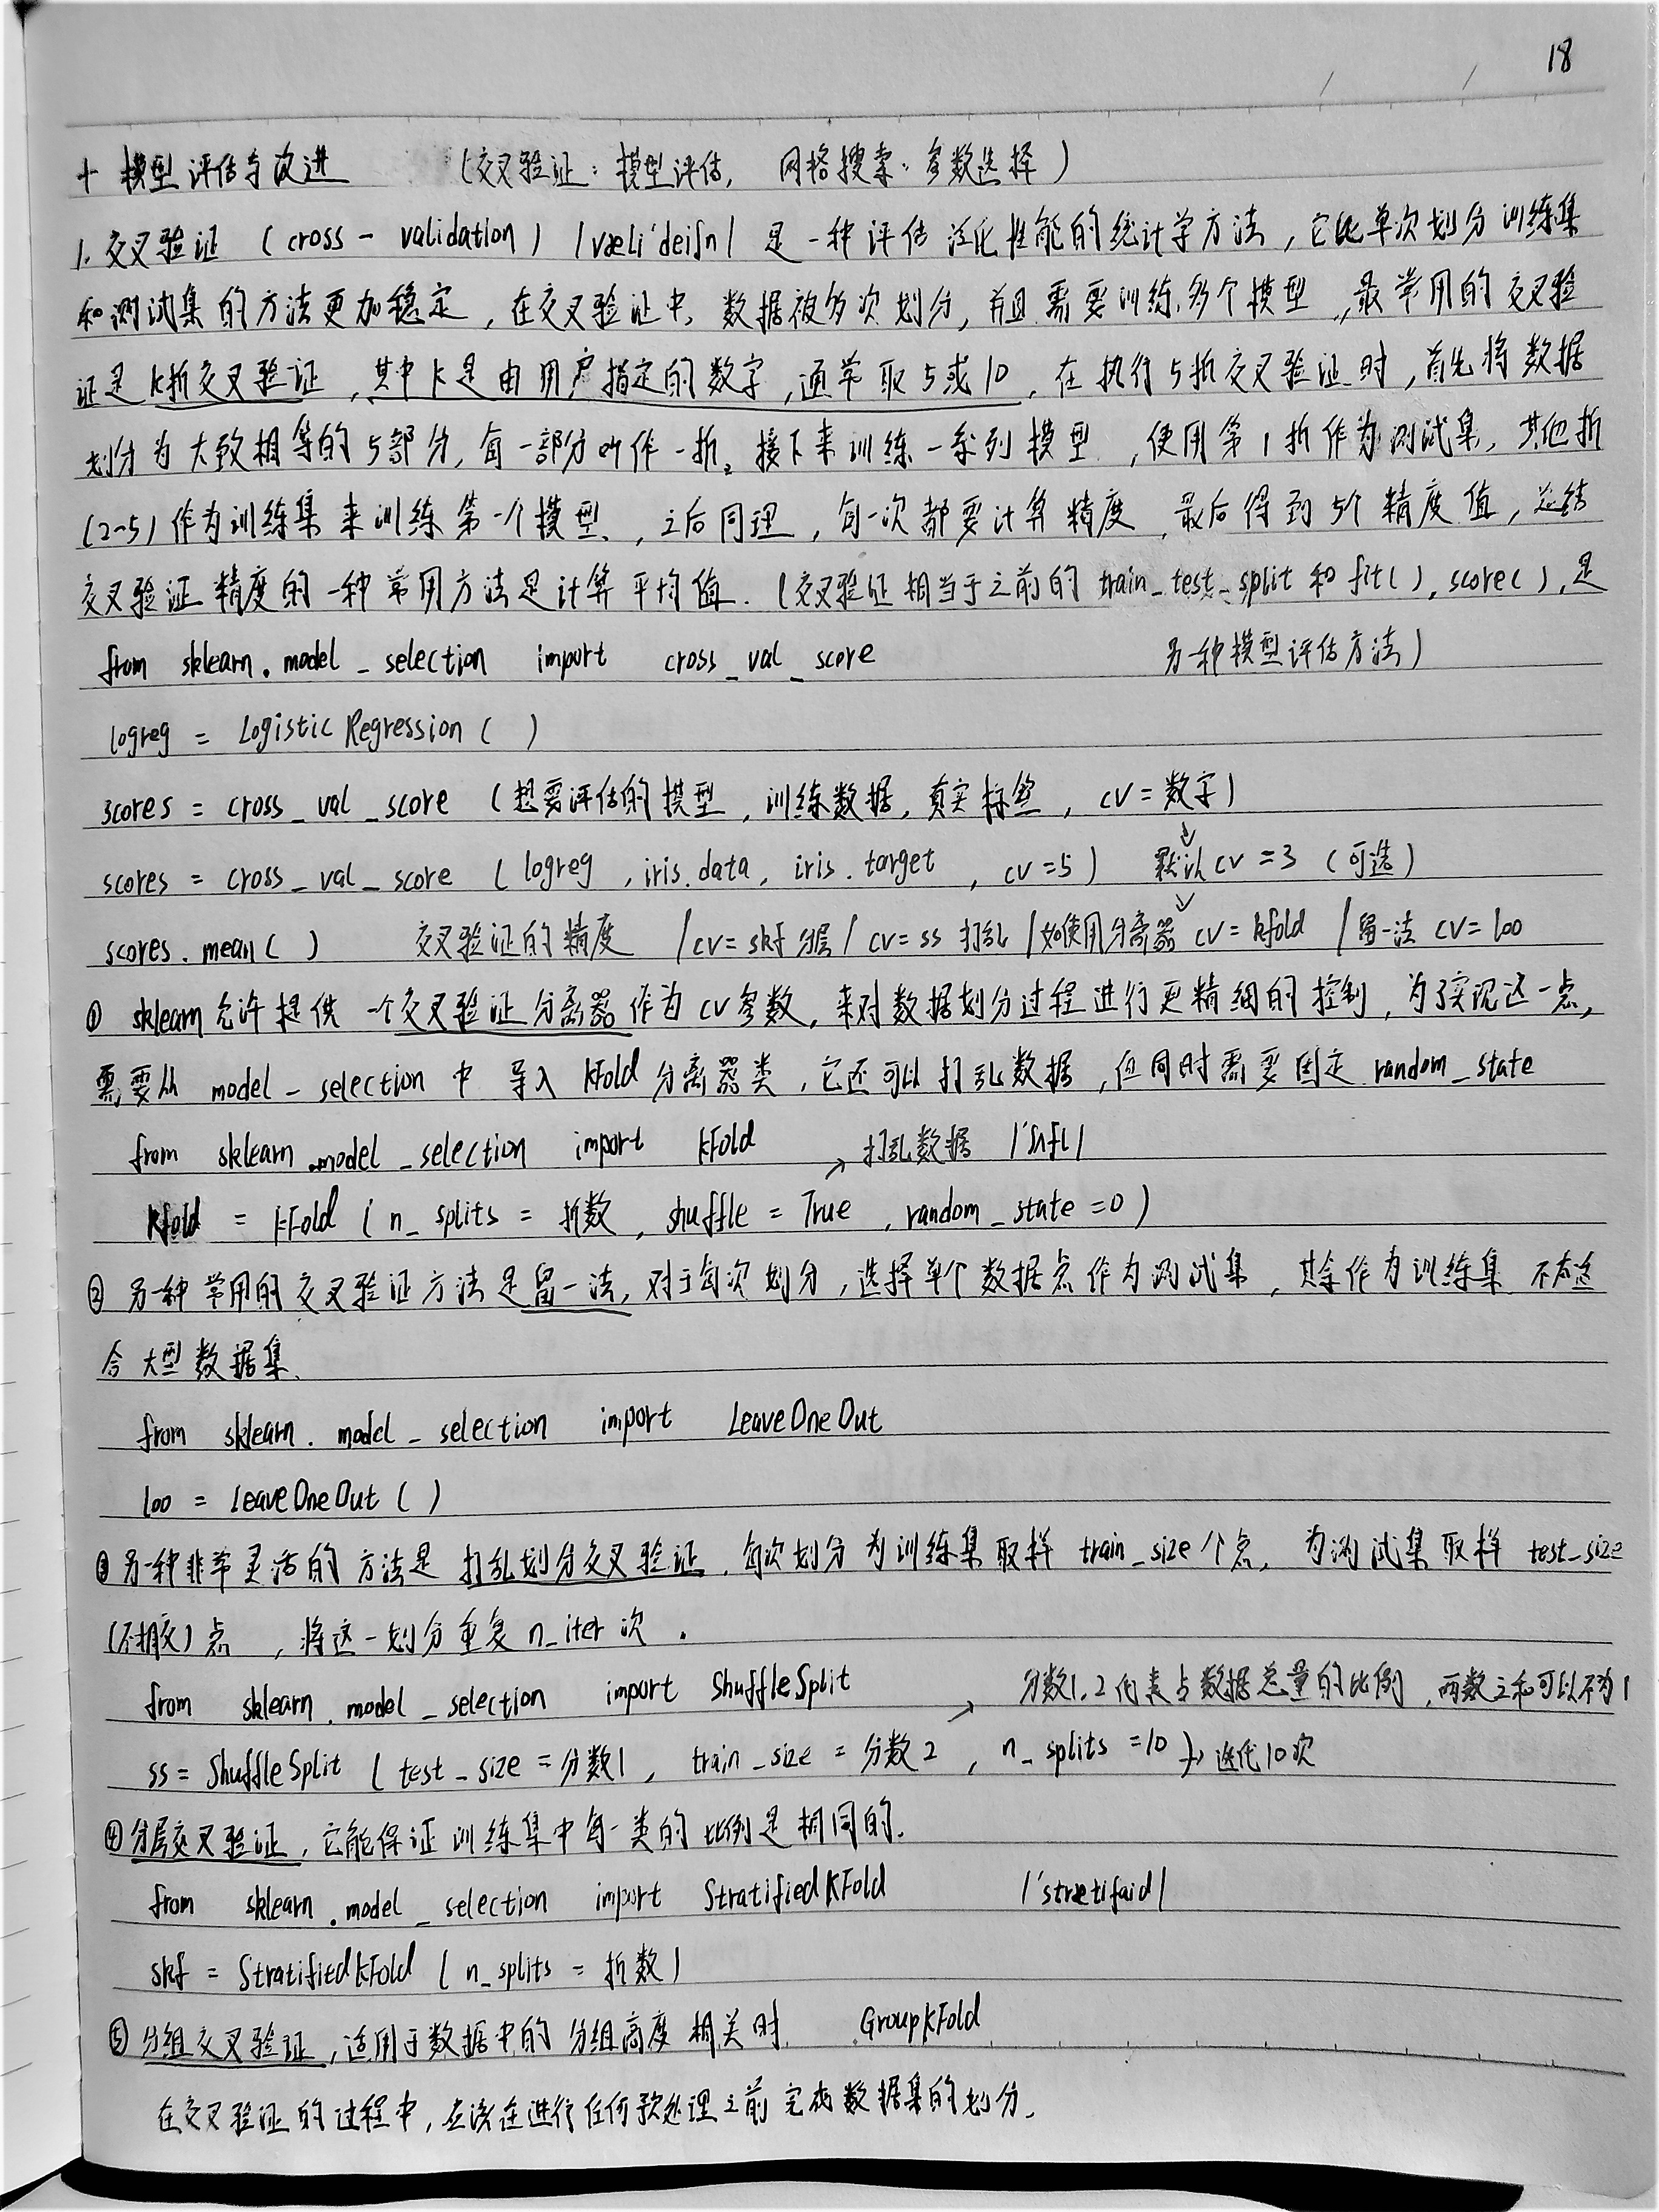 18
十 模型评估与改进 (交叉验证：模型评估, 网格搜索：参数选择)
1. 交叉验证 (cross - validation) /væli'deiʃn/ 是一种评估泛化性能的统计学方法, 它比单次划分训练集
和测试集的方法更加稳定, 在交叉验证中, 数据被多次划分, 并且需要训练多个模型, 最常用的交叉验
证是k折交叉验证, 其中k是由用户指定的数字, 通常取5或10, 在执行5折交叉验证时, 首先将数据
划分为大致相等的5部分, 每一部分叫作一折。接下来训练一系列模型, 使用第1折作为测试集, 其他折
(2~5)作为训练集来训练第一个模型, 之后同理, 每一次都要计算精度, 最后得到5个精度值, 总结
交叉验证精度的一种常用方法是计算平均值. (交叉验证相当于之前的 train_test_split 和 fit( ), score( ), 是
from sklearn.model_selection import cross_val_score 另一种模型评估方法)
logreg = LogisticRegression ( )
scores = cross_val_score (想要评估的模型, 训练数据, 真实标签, cv=数字)
scores = cross_val_score (logreg, iris.data, iris.target, cv=5) 默认cv=3 (可选)
scores.mean( ) 交叉验证的精度 /cv=skf 分层/ cv=ss 打乱 /如使用分离器 cv=kfold /留一法 cv=loo
① sklearn允许提供一个交叉验证分离器作为cv参数, 来对数据划分过程进行更精细的控制, 为了实现这一点,
需要从 model_selection 中 导入 KFold 分离器类, 它还可以打乱数据, 但同时需要固定 random_state
from sklearn.model_selection import KFold → 打乱数据 /'ʃʌfl/
kfold = KFold (n_splits = 折数, shuffle = True, random_state=0)
② 另一种常用的交叉验证方法是留一法, 对于每次划分, 选择单个数据点作为测试集, 其余作为训练集 不太适
合大型数据集.
from sklearn.model_selection import LeaveOneOut
loo = LeaveOneOut ( )
③ 另一种非常灵活的方法是 打乱划分交叉验证. 每次划分为训练集取样 train_size个点, 为测试集取样 test_size
(不相交)点, 将这一划分重复 n_iter 次.
from sklearn.model_selection import ShuffleSplit → 分数1,2代表占数据总量的比例, 两数之和可以不为1
ss = ShuffleSplit (test_size = 分数1, train_size = 分数2, n_splits=10) → 迭代10次
④ 分层交叉验证, 它能保证训练集中每一类的比例是相同的.
from sklearn.model_selection import StratifiedKFold /'strætifaid/
skf = StratifiedKFold (n_splits = 折数)
⑤ 分组交叉验证, 适用于数据中的分组高度相关时 GroupKFold
在交叉验证的过程中, 应该在进行任何预处理之前完成数据集的划分.